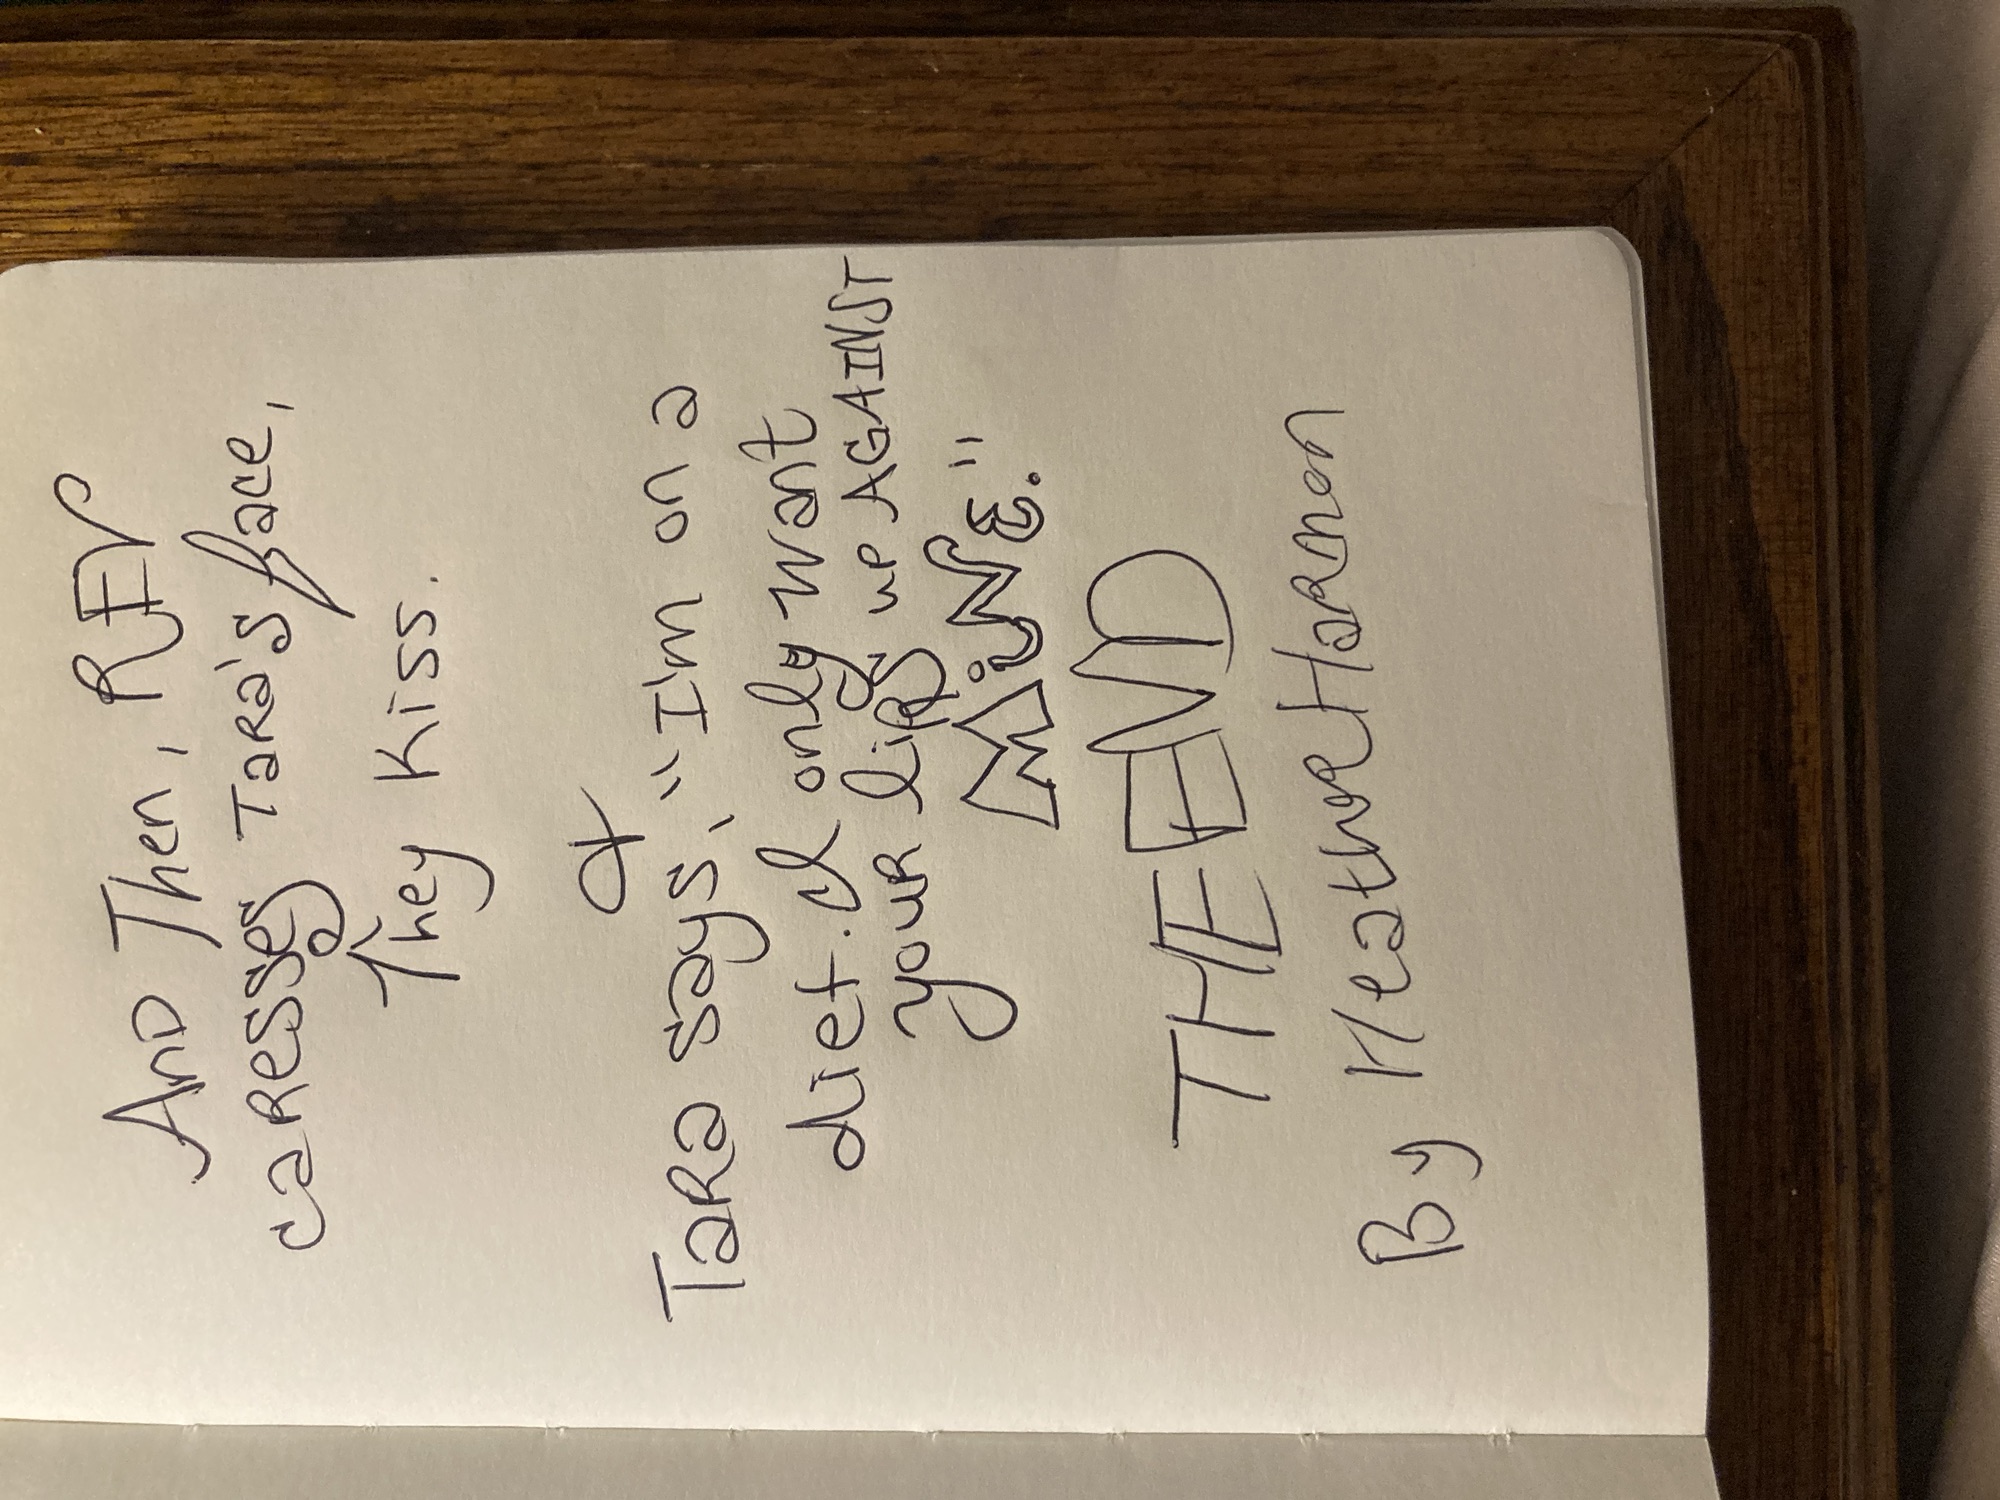 And Then, REV
caresses Tara's face,
They Kiss.
Tara says, "I'm on a
diet. I only want
your lips up AGAINST
MiNE."
THE END
By Heather Harmon